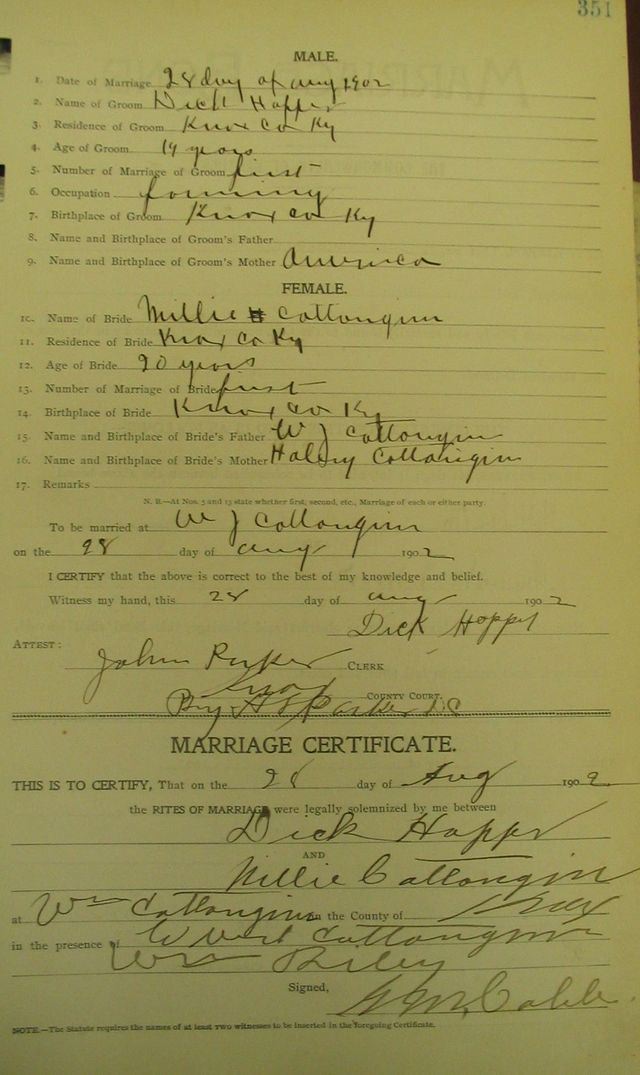 351
MALE.
1. Date of Marriage 28 day of aug 1902
2. Name of Groom Dick Hopper
3. Residence of Groom Knox Co Ky
4. Age of Groom 19 years
5. Number of Marriage of Groom first
6. Occupation farming
7. Birthplace of Groom Knox co Ky
8. Name and Birthplace of Groom's Father
9. Name and Birthplace of Groom's Mother America
FEMALE.
10. Name of Bride Millie Cottongim
11. Residence of Bride Knox Co Ky
12. Age of Bride 20 years
13. Number of Marriage of Bride first
14. Birthplace of Bride Knox co Ky
15. Name and Birthplace of Bride's Father W J Cottongin
16. Name and Birthplace of Bride's Mother Cottongin
17. Remarks
N. B.—At Nos. 5 and 13 state whether first, second, etc., Marriage of each or either party.
To be married at W J Cottongim
on the 28 day of aug 1902
I CERTIFY that the above is correct to the best of my knowledge and belief.
Witness my hand, this 28 day of aug 1902
Dick Hopper
ATTEST:
John Parker CLERK
Knox COUNTY COURT.
By Parker D C
MARRIAGE CERTIFICATE.
THIS IS TO CERTIFY, That on the 28 day of Aug 1902
the RITES OF MARRIAGE were legally solemnized by me between
Dick Hopper
AND
Millie Cottongin
at Wm Cottongims in the County of Knox
in the presence of Cottongim
Wm Riley
Signed,
NOTE.—The Statute requires the names of at least two witnesses to be inserted in the foregoing Certificate.